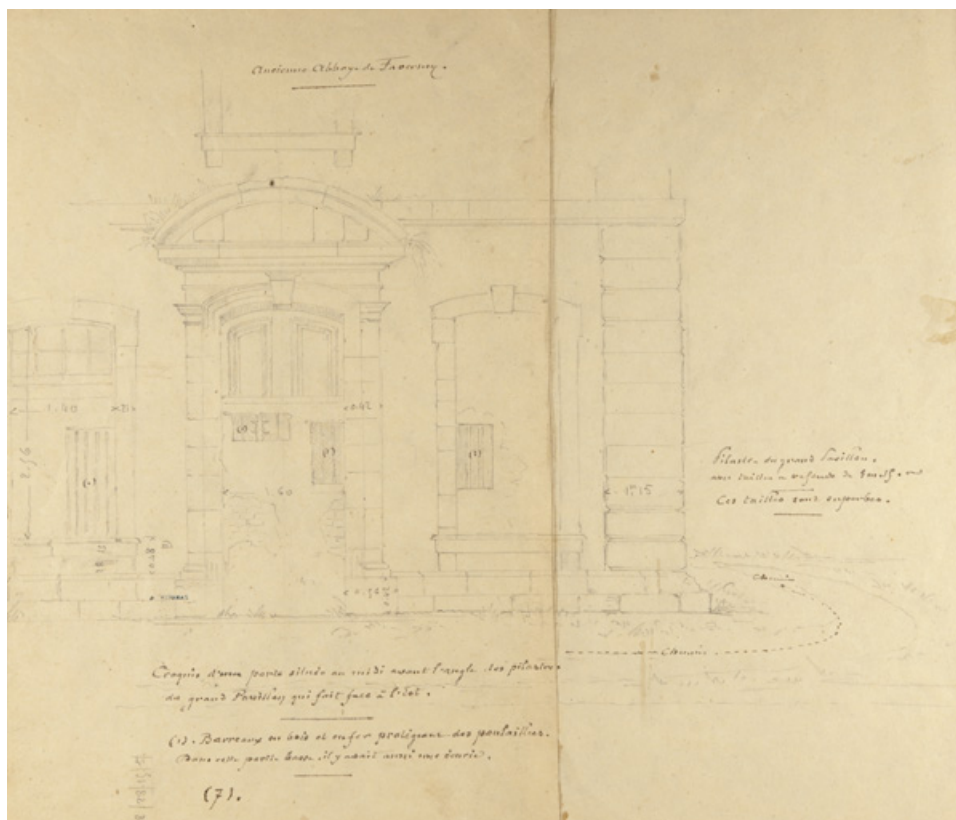 Ancienne Abbaye de Faverney.
1.40
0.42
(1)
(1)
(1)
(1)
2.56
1.60
1.15
Pilastre du grand Pavillon.
avec tailles à refends de
Ces tailles sont superbes.
Chemin
Chemin
Croquis d'une porte située au midi avant l'angle des pilastres
du grand Pavillon qui fait face à l'Est.
(1). Barreaux en bois et en fer protégeant des poulaillers.
Dans cette partie basse, il y avait aussi une écurie.
(7).